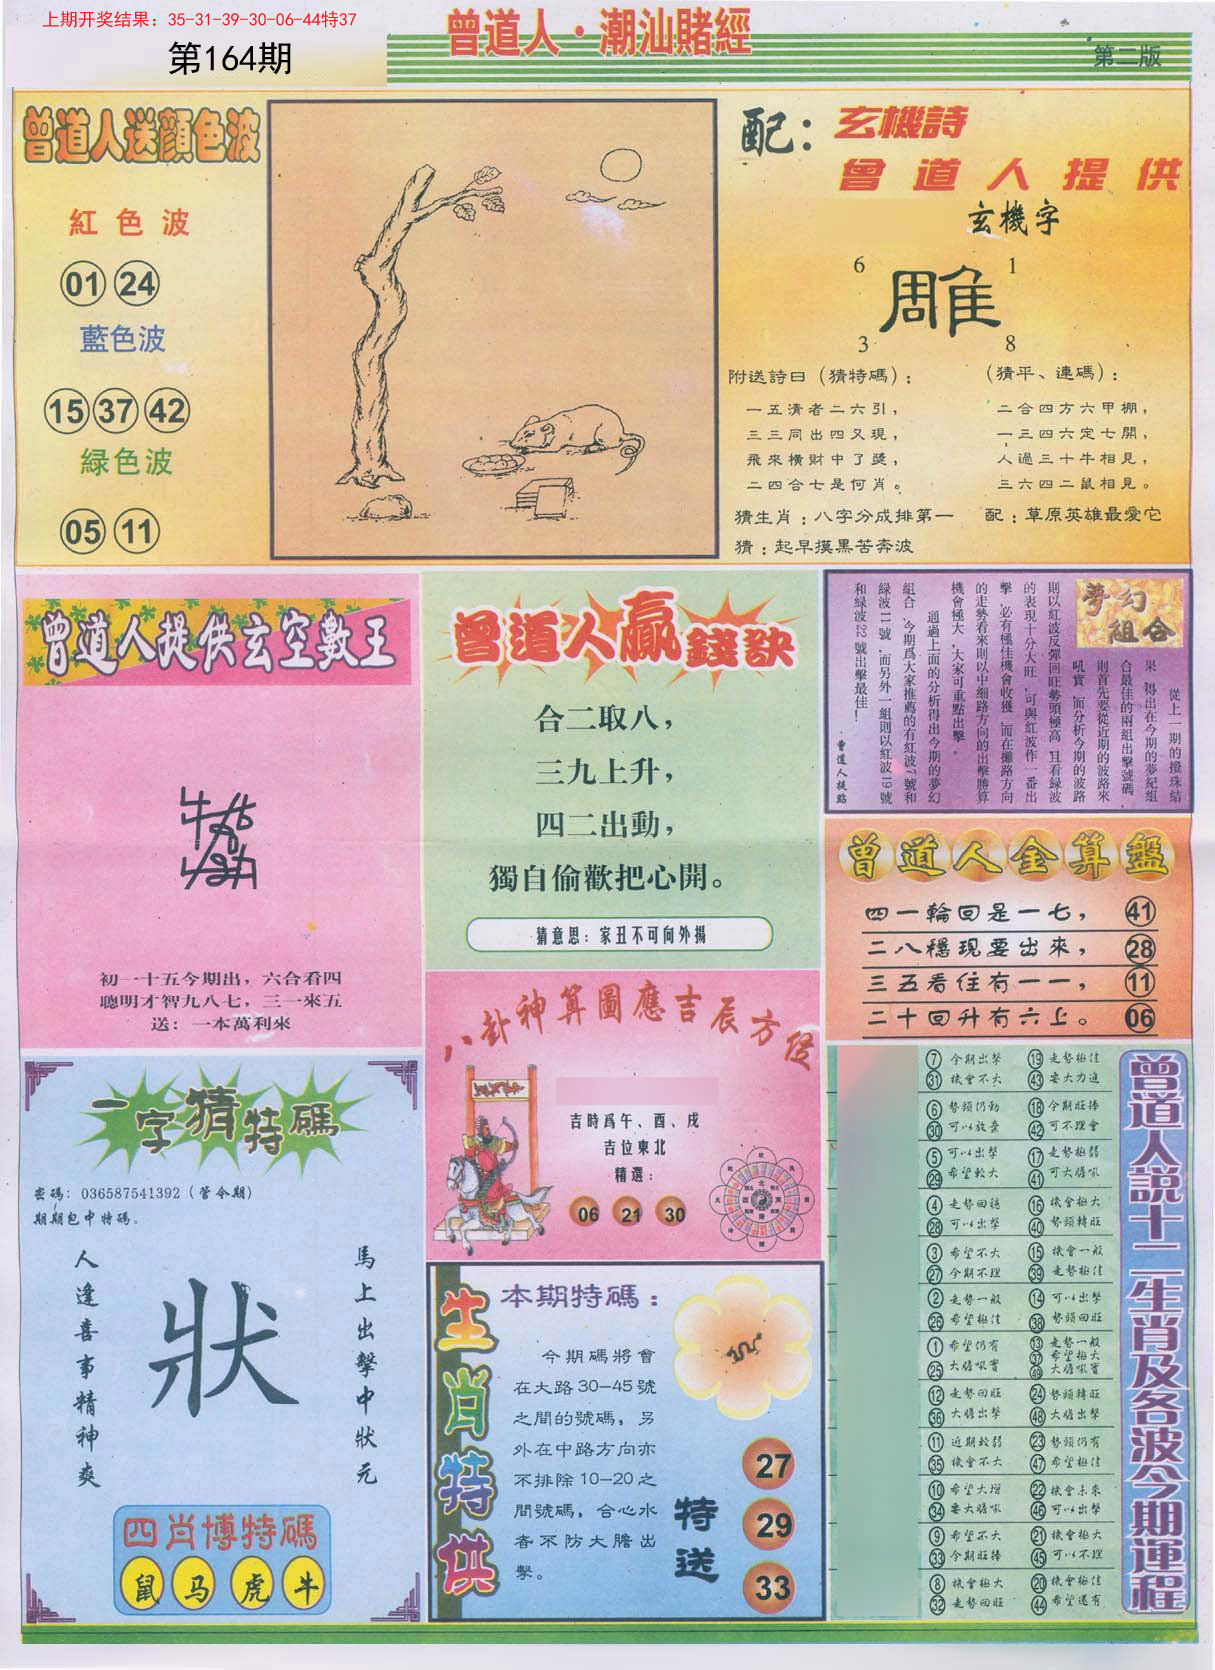 上期开奖结果：35-31-39-30-06-44特37
第164期
曾道人·潮汕賭經
第二版
曾道人送顏色波
紅色波
01 24
藍色波
15 37 42
緑色波
05 11
配：玄機詩
曾道人提供
玄機字
6 1
雕
3 8
附送詩曰（猜特碼）：
一五清者二六引，
三三同出四又現，
飛來橫財中了獎，
二四合七是何肖。
（猜平、連碼）：
二合四方六甲棚，
一三四六定七開，
人過三十牛相見，
三六四二鼠相見。
猜生肖：八字分成排第一 配：草原英雄最愛它
猜：起早摸黑苦奔波
曾道人提供玄空數王
初一十五今期出，六合看四
聰明才智九八七，三一來五
送：一本萬利來
曾道人贏錢訣
合二取八，
三九上升，
四二出動，
獨自偷歡把心開。
猜意思：家丑不可向外揚
夢幻
組合
從上一期的攪珠結
果，得出在今期的夢紀組
合最佳的兩組出擊號碼，
則首先要從近期的波路來
吼實，而分析今期的波路
則以紅波反彈回旺勢頭極高，且看緑波
的表現十分大旺，可與紅波作一番出
擊，必有極佳機會收獲，而在攤路方向
的走勢看來則以中細路方向的出擊勝算
機會極大，大家可重點出擊。
通過上面的分析得出今期的夢幻
組合，今期爲大家推薦的有紅波7號和
緑波11號，而另外一組則以紅波19號
和緑波22號出擊最佳！
曾道人提點
曾道人金算盤
四一輪回是一七， 41
二八穩現要出來， 28
三五看住有一一， 11
二十回升有六上。 06
八卦神算圖應吉辰方位
吉時爲午、酉、戌
吉位東北
精選：
06 21 30
一字猜特碼
密碼：036587541392（管令期）
期期包中特碼。
人逢喜事精神爽
狀
馬上出擊中狀元
四肖博特碼
鼠 马 虎 牛
生肖特供
本期特碼：
今期碼將會
在大路30—45號
之間的號碼，另
外在中路方向亦
不排除10—20之
間號碼，合心水
者不防大膽出
擊。
特送
27
29
33
曾道人說十二生肖及各波今期運程
7 今期出擊 19 走勢極佳
31 機會不大 43 要大力追
6 勢頭仍動 18 今期旺捧
30 可以放棄 42 可不理會
5 可以出擊 17 走勢極弱
29 希望較大 41 可大膽吼
4 走勢回穩 16 機會極大
28 可以出擊 40 勢頭轉旺
3 希望不大 15 機會一般
27 今期不理 39 走勢極佳
2 走勢一般 14 可以出擊
26 希望極佳 38 勢頭回旺
1 希望仍有 13 走勢一般
37 希望極大
25 大膽吼實 49 大膽吼實
12 走勢回旺 24 勢頭轉旺
36 大膽出擊 48 大膽出擊
11 近期較弱 23 勢頭仍有
35 機會不大 47 希望極佳
10 希望大增 22 機會未來
34 要大膽吼 46 可以出擊
9 希望不大 21 機會極大
33 今期旺捧 45 可以不理
8 機會極大 20 機會極佳
32 走勢回旺 44 希望還有